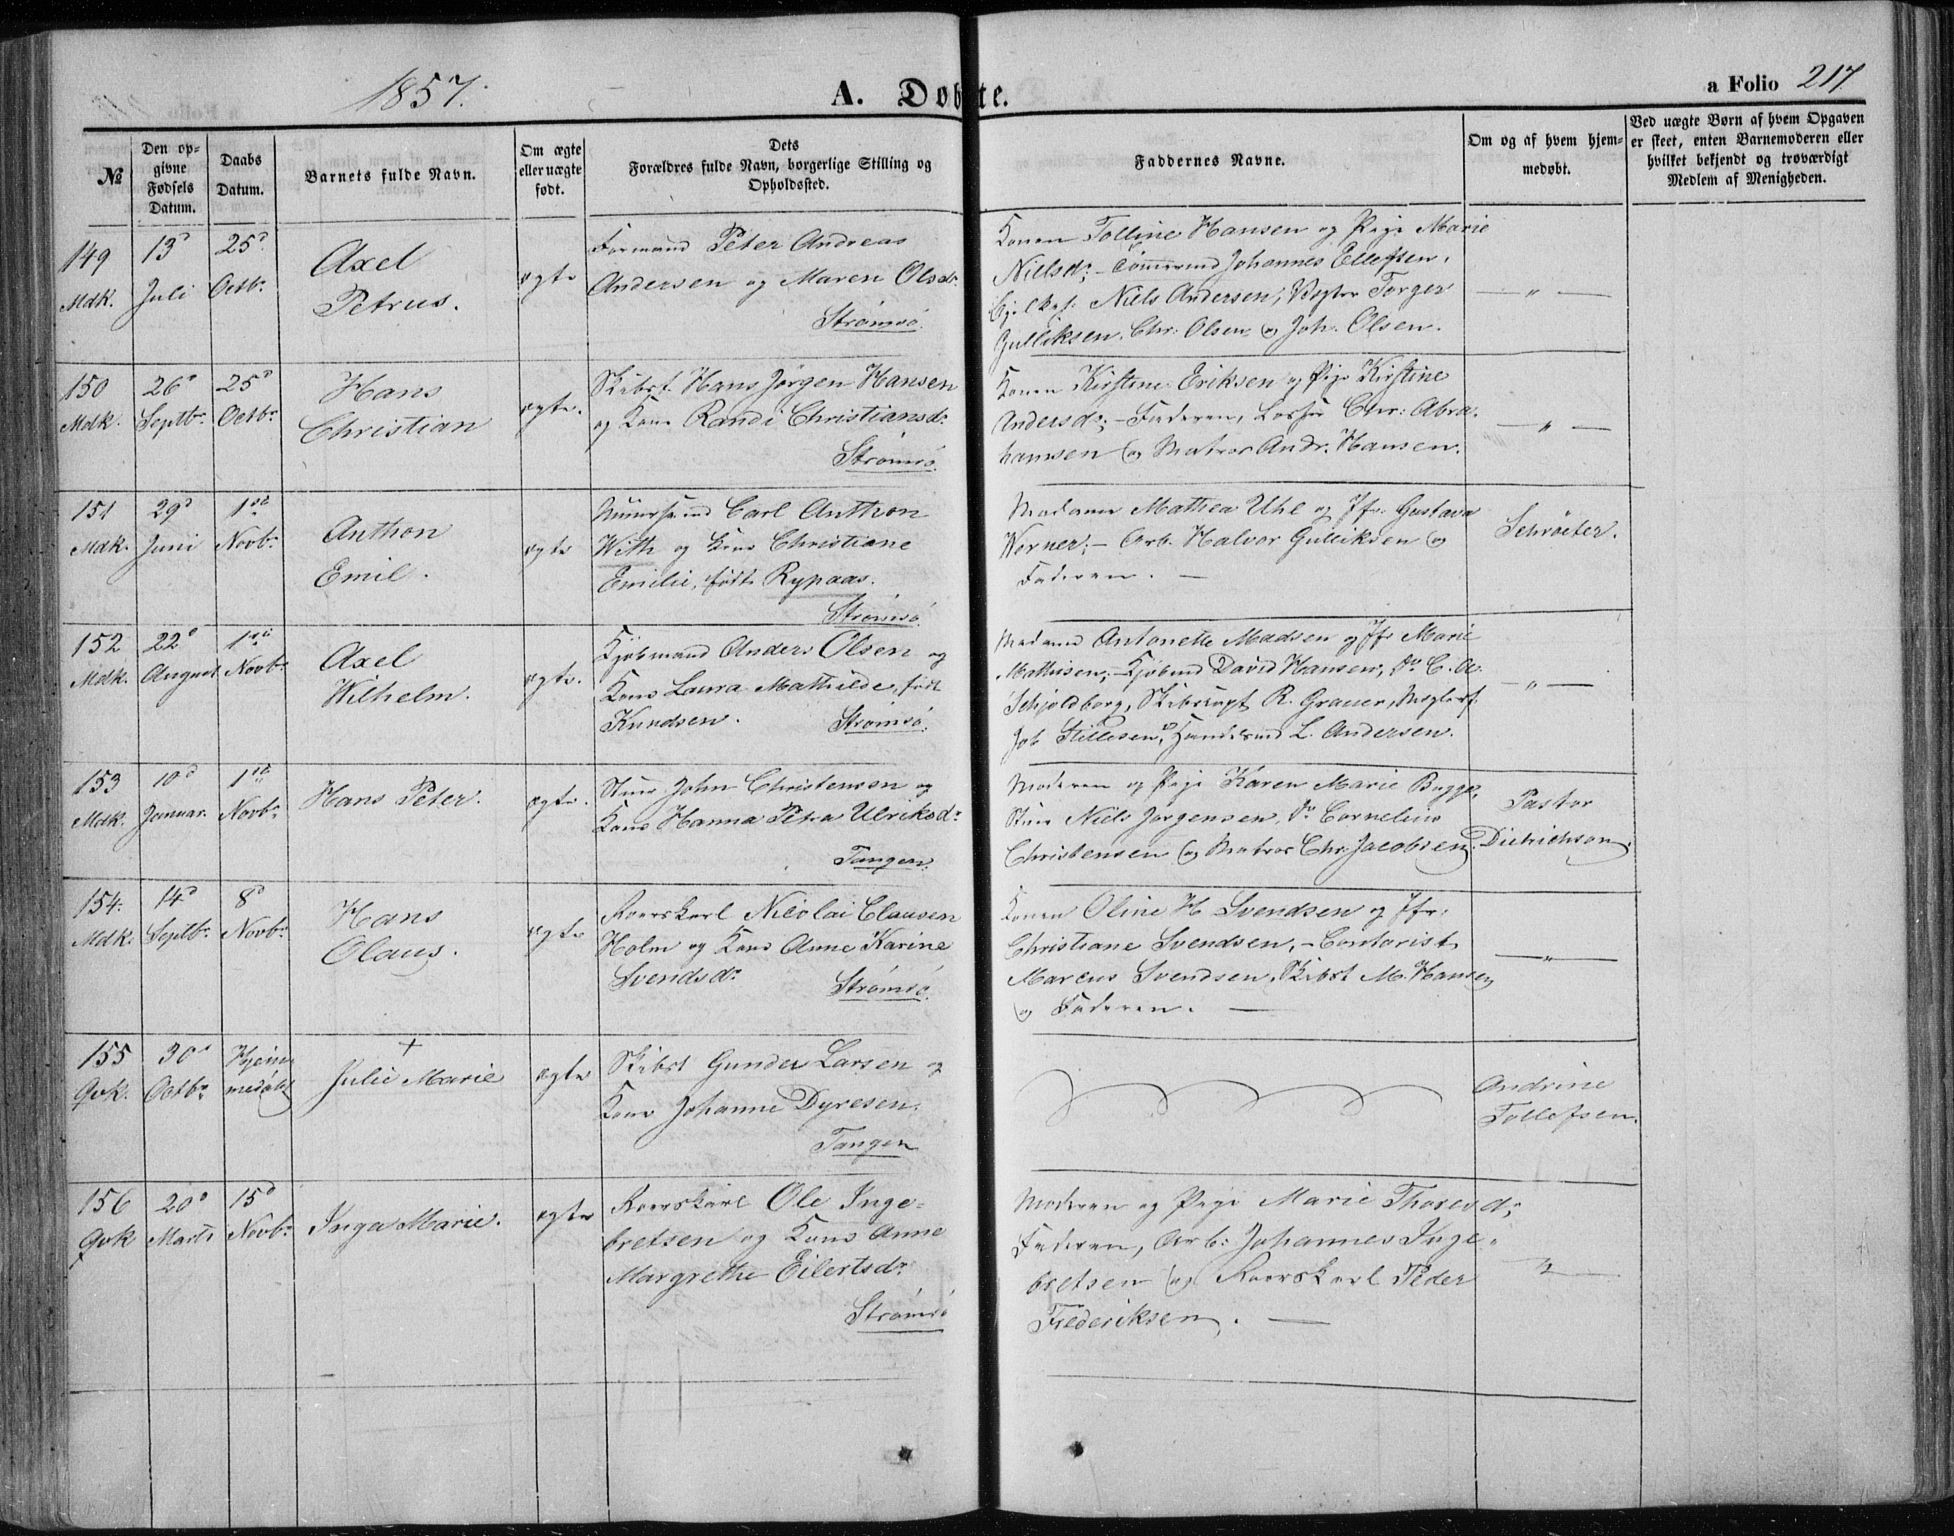 1857.
A. Døbte.
a Folio 217.
№
Den op-
givne
Fødsels
Datum.
Daabs
Datum.
Barnets fulde Navn.
Om ægte
eller uægte
født.
Dets
Forældres fulde Navn, borgerlige Stilling og
Opholdssted.
Faddernes Navne.
Om og af hvem hjem-
medøbt.
Ved uægte Børn af hvem Opgaven
er skeet, enten Barnemoderen eller
hvilket bekjendt og troværdigt
Medlem af Menigheden.
149
Mdk.
13d
Juli
25d
Octbr
Axel
Petrus.
ægte
Formand Peter Andreas
Andersen og Maren Olsdr
Strømsø.
Konen Tolline Hansen og Pige Marie
Nielsdr; – Tømmermd Johannes Ellefsen,
Niels Andersen, Vægter Torger
Gulliksen, Chr: Olsen og Joh. Olsen.
— " —
150
Mdk.
26d
Septbr
25d
Octbr
Hans
Christian
ægte.
Skibst. Hans Jørgen Hansen
og Kone Randi Christiansdr
Strømsø.
Konen Kirstine Eriksen og Pige Kirstine
Andersdr; – Faderen, Chr: Abra-
hamsen og Matros Andr. Hansen.
— " —
151
Mdk.
29d
Juni
1ste
Novbr
Anthon
Emil.
ægte
Carl Anthon
With og Kone Christiane
Emilie, født Rypaas.
Strømsø.
Madame Mathea Uhl og Jfr. Gustava
Wørner; – Arb. Halvor Gulliksen og
Faderen. —
Schrøeter.
152
Mdk.
22d
August
1ste
Novbr
Axel
Wilhelm.
ægte.
Kjøbmand Anders Olsen og
Kone Laura Mathilde, født
Knudsen. Strømsø.
Madame Antonette Madsen og Jfr Marie
Mathisen; – Kjøbmd David Hansen, Do C. A.
Schjoldborg, Skibscapt R. Grauer,
Joh Stillesen, Handelsmd L. Andersen.
— " —
153
Mdk.
10d
Januar.
1ste
Novbr
Hans Peter.
ægte.
Stuer John Christensen og
Kone Hanna Petra Ulriksdr
Tangen.
Moderen og Pige Karen Marie Bugge,
Stuer Niels Jørgensen, Do Cornelius
Christensen og Matros Chr. Jacobsen.
Pastor
Dietrichson.
154.
Mdk.
14d
Septbr
8d
Novbr
Hans
Olaus.
ægte
Roerskarl Nicolai Clausen
Holm og Kone Anne Karine
Svendsdr Strømsø.
Konen Oline H Svendsen og Jfr:
Christiane Svendsen, – Contorist
Marcus Svendsen, Skibst M. Hansen
og Faderen. —
— " —
155
Qvk.
30d
Octbr
Hjem-
medøbt
+
Julie Marie
ægte
Skibst Gunder Larsen og
Kone Johanne Dyresen.
Tangen
Andrine
Tollefsen.
156
Qvk
20d
Marts
15d
Novbr
Inga Marie.
ægte
Roerskarl Ole Inge-
bretsen og Kone Anne
Margrethe Eilertsdr
Strømsø
Moderen og Pige Marie Thoresd;
Faderen, Arb: Johannes Inge-
bretsen og Roerskarl Peder
Frederiksen. —
— " —